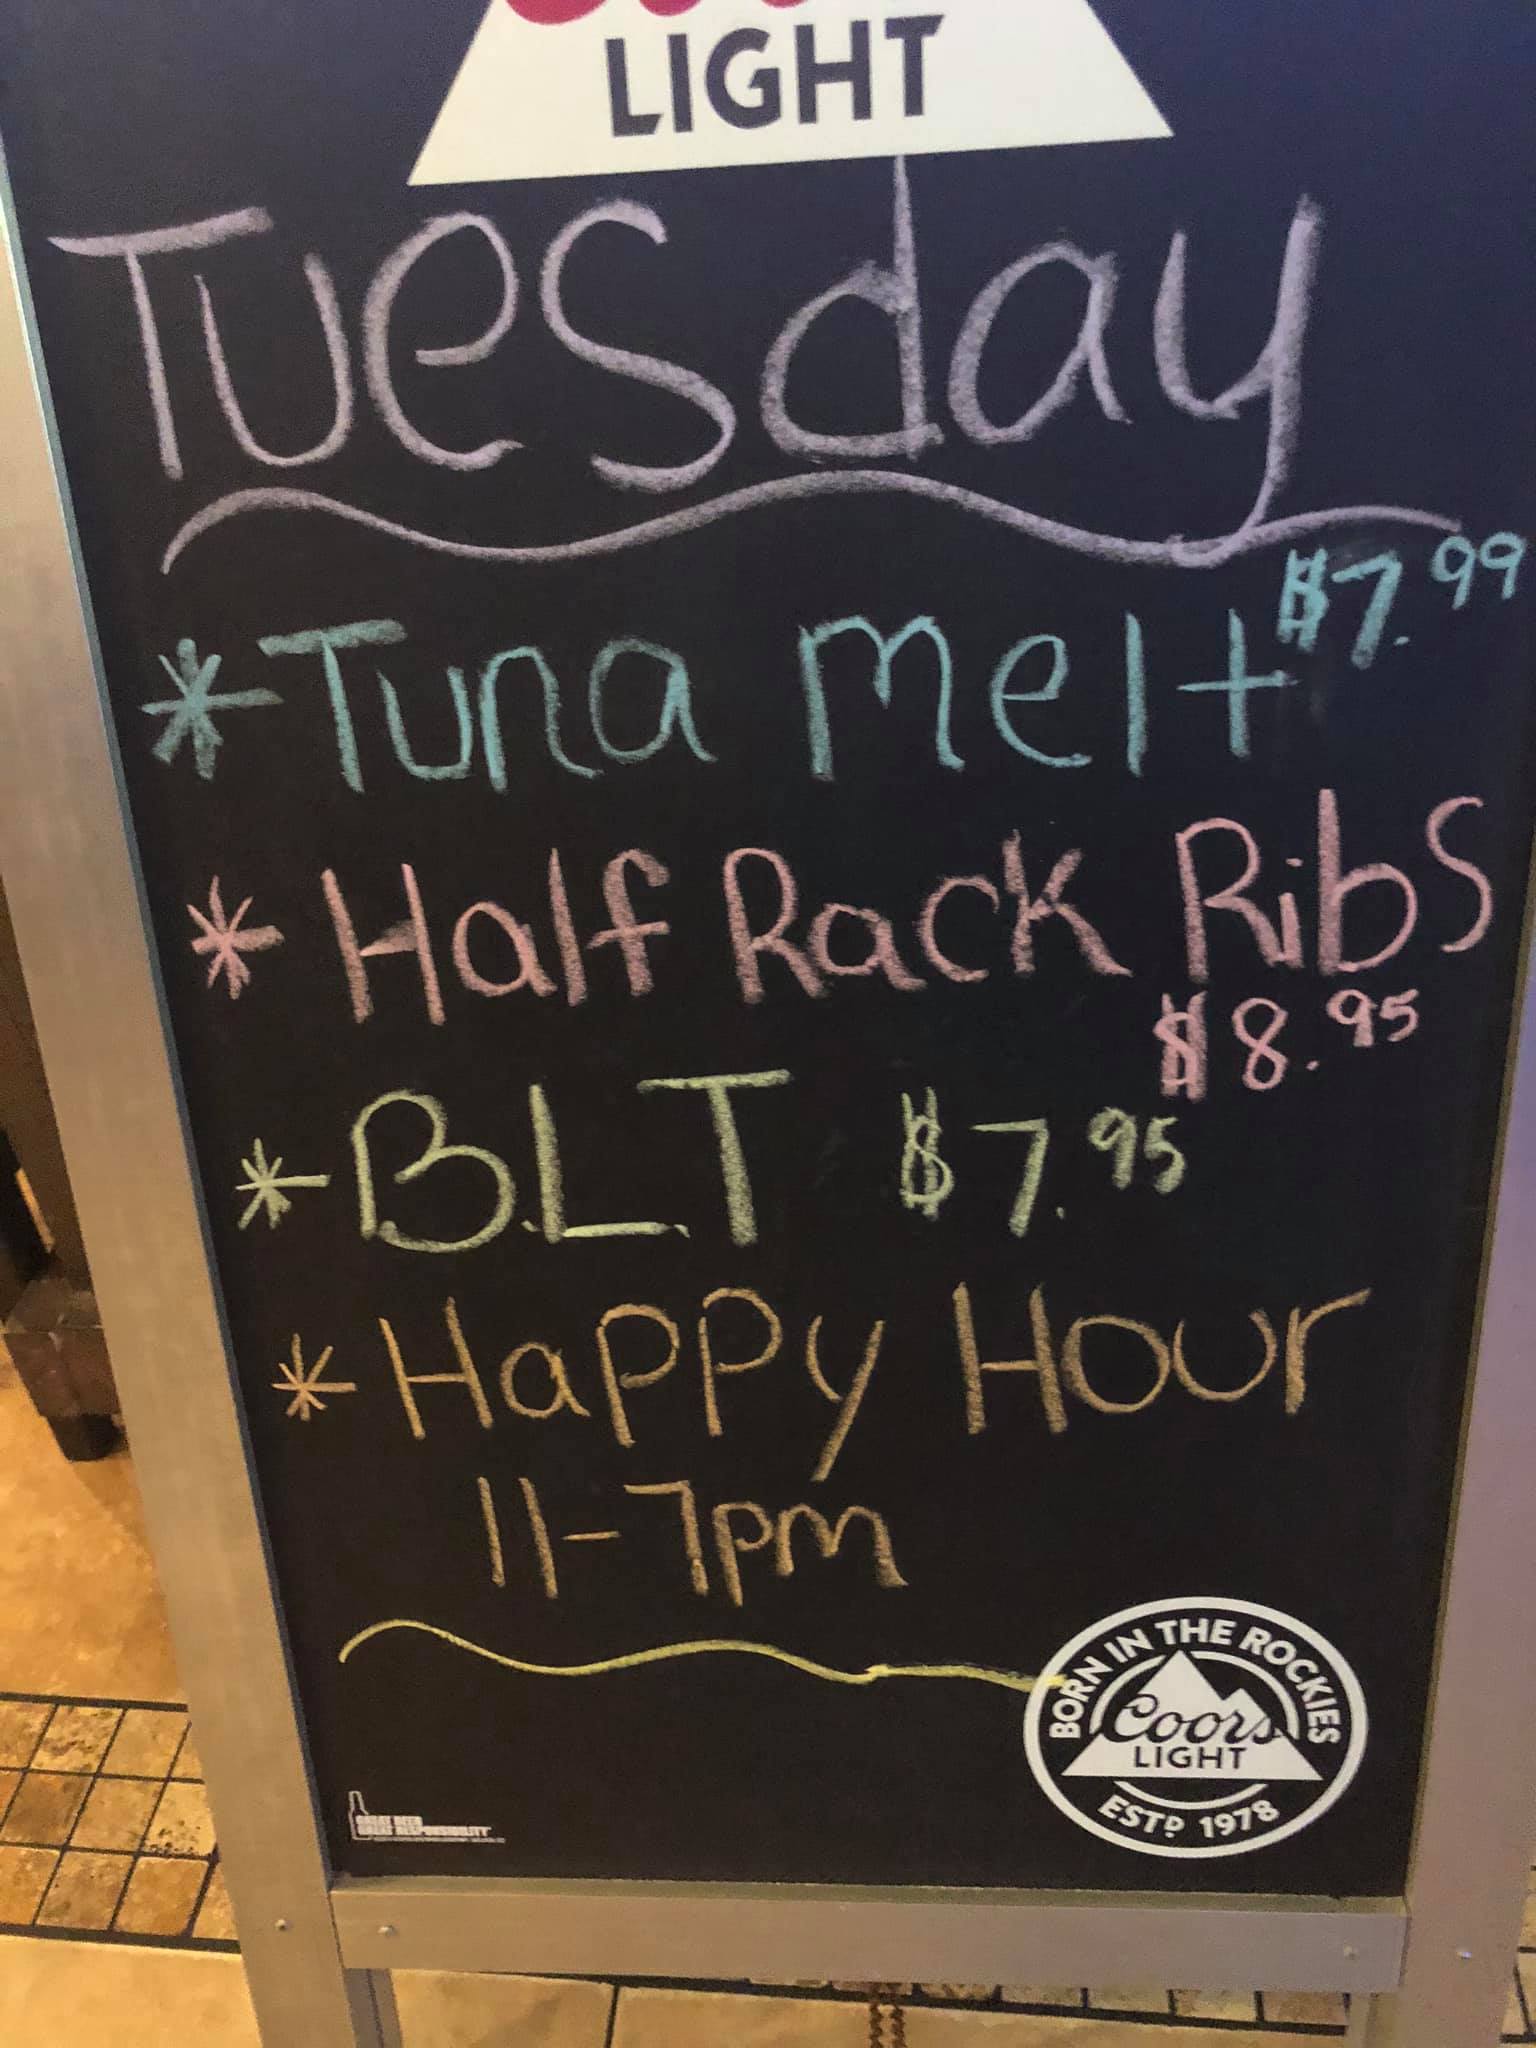 LIGHT
Tuesday
*Tuna melt $7.99
*Half Rack Ribs
$8.95
*B.L.T $7.95
*Happy Hour
11-7pm
BORN IN THE ROCKIES
Coors
LIGHT
ESTD 1978
GREAT BEER
GREAT RESPONSIBILITY